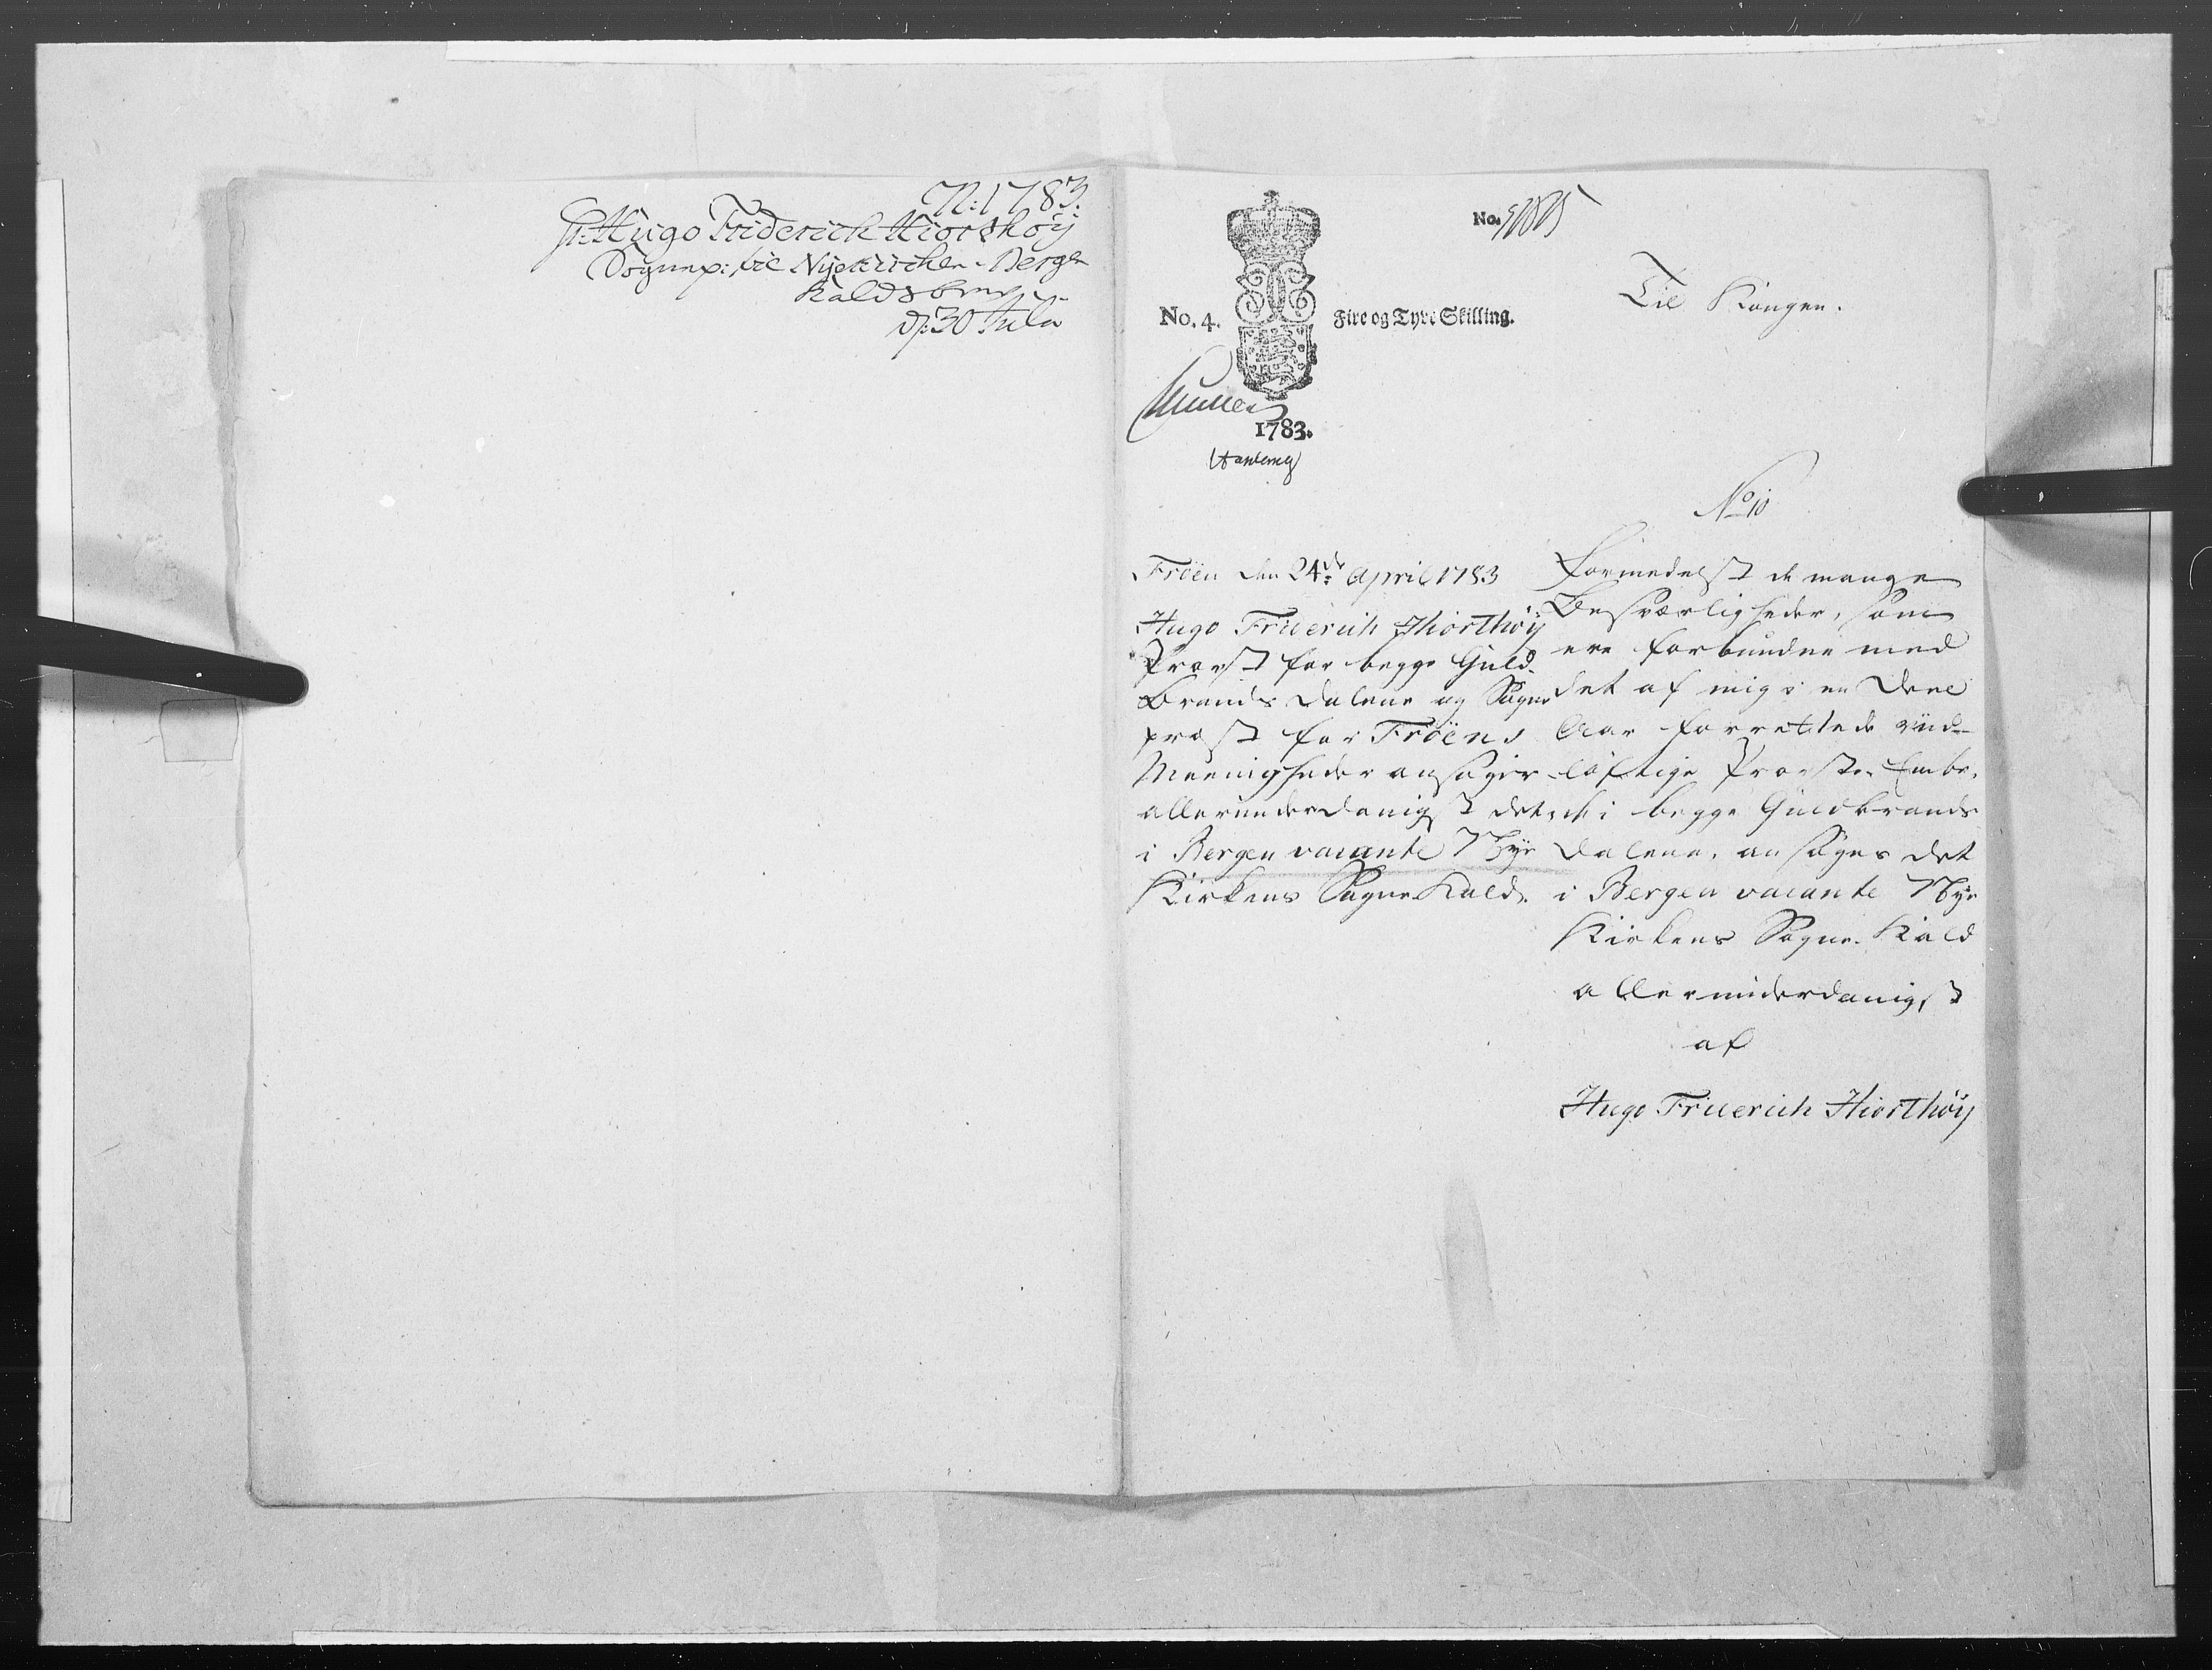 N: 1783.
Hr: Hugo Friderich Hiorthöy
Sognep: til Nyekirchen i Bergen
Kaldsbrev
D: 30 Julii
No. 4.
Fire og Tyve Skilling.
1783.
No.
Til Kongen.
No 10
Fröen den 24de April 1783
Hugo Friderich Hiorthöy
Provst for begge Guld-
brands Dalene og Sogne
præst for Fröens
Meenigheder ansøger
allerunderdanigst det
i Bergen vacante Nye
Kirkens Sogne Kald.
Formedelst de mange
Besværligheder, som
ere forbundne med
det af mig i en Deel
Aar forrettede vüd-
løftige Provste-Embe-
de i begge Guldbrands
Dalene, ansøges det
i Bergen vacante Nye
Kirkens Sogne-Kald
allerunderdanigst
af
Hugo Friderich Hiorthöy